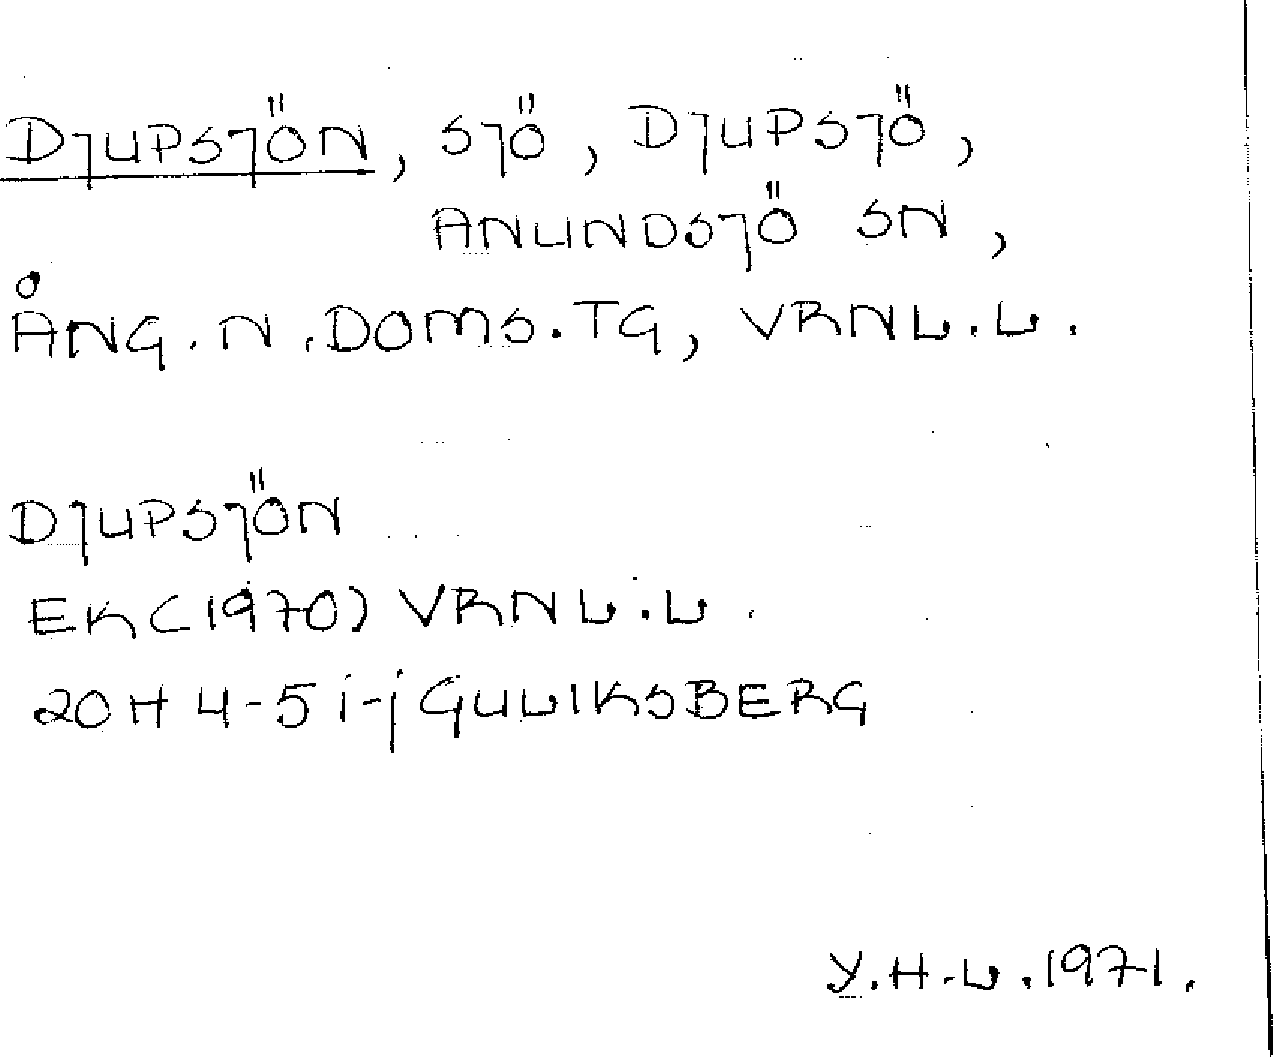 DJUPSJÖN, SJÖ, DJUPSJÖ,
ANUNDSJÖ SN,
ÅNG.N.DOMS.TG, VRNL.L.
DJUPSJÖN
EK(1970) VRNL.L.
20H 4-5 i-j GULIKSBERG
Y.H.L.1971.